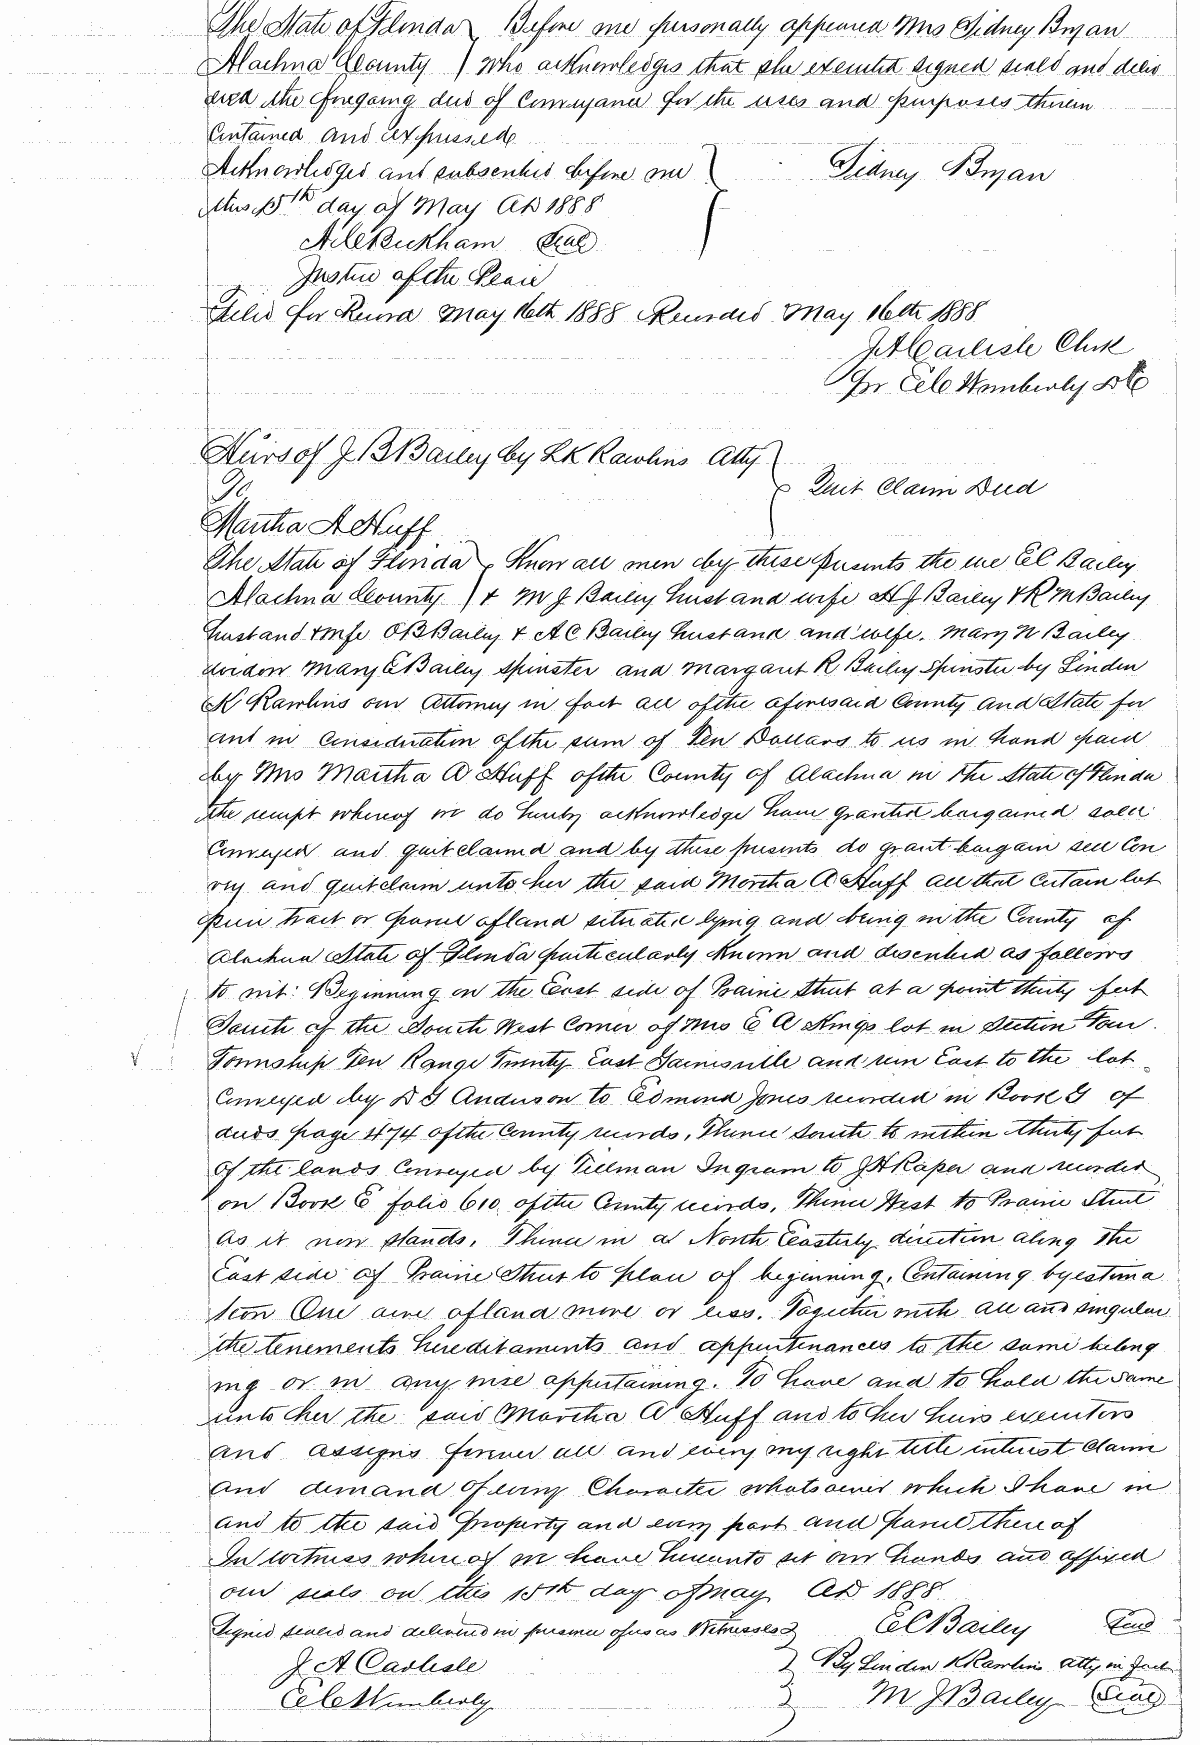 The State of Florida } Before me personally appeared Mrs Sidney Bryan
Alachua County } Who acknowledges that she executed signed seald and deliv
ered the foregoing deed of Conveyance for the uses and purposes therein
Contained and expressed
Acknowledged and subscribed before me } Sidney Bryan
this 15th day of May AD 1888
Beckham Seal
Justice of the Peace
Filed for Record May 16th 1888 Recorded May 16th 1888
J A Carlisle Clerk
Pr Wimberly DC
Heirs of J B Bailey by L K Rawlins Atty }
To } Quit Claim Deed
Martha A Huff
The State of Florida } Know all men by these presents the we E C Bailey
Alachua County } & M J Bailey husband wife H J Bailey & R M Bailey
husband & wife O B Bailey & A C Bailey husband and wife. Mary N Bailey
widow Mary E Bailey spinster and Margaret R Bailey spinster by Linden
K Rawlins our Attorney in fact all of the aforesaid County and State for
and in Consideration of the sum of Ten Dollars to us in hand paid
by Mrs Martha A Huff of the County of Alachua in the State of Florida
the receipt whereof we do hereby acknowledge have granted bargained sold
Conveyed and quitclaimed and by these presents do grant bargain sell Con
vey and quitclaim unto her the said Martha A Huff all that Certain lot
piece tract or parcel of land situated lying and being in the County of
Alachua State of Florida particularly known and described as follows
to wit: Beginning on the East side of Prairie Street at a point thirty feet
South of the South West Corner of Mrs E A Kings lot in Section Four
Township Ten Range Twenty East Gainesville and run East to the lot
Conveyed by D G Anderson to Edmond Jones recorded in Book G of
deeds page 474 of the County records, Thence South to within thirty feet
of the lands Conveyed by Tillman Ingram to J H Raper and recorded
on Book E folio 610 of the County records, Thence West to Prairie Street
as it now stands, Thence in a North Easterly direction along the
East side of Prairie Street to place of beginning, Containing by estima
tion One acre of land more or less. Together with all and singular
the tenements hereditaments and appurtenances to the same belong
ing or in any wise appertaining. To have and to hold the same
unto her the said Martha A Huff and to her heirs executors
and assigns forever all and every my right title interest claim
and demand of every Character whatsoever which I have in
and to the said property and every part and parcel thereof
In witness whereof we have hereunto set our hands and affixed
our seals on this 15th day of May AD 1888
Signed sealed and delivered in presence of us as Witnesses } E C Bailey Seal
J A Carlisle } By Linden K Rawlins atty in fact
Wimberly } M J Bailey Seal